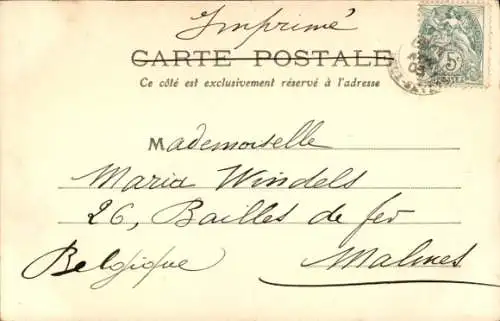 Imprimé
CARTE POSTALE
Ce côté est exclusivement réservé à l'adresse
Mademoiselle
Maria Windels
26, Bailles de fer
Belgique Malines